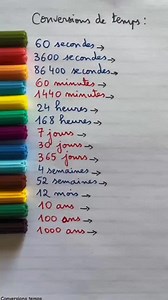 Conversions de temps :
60 secondes →
3600 secondes →
86 400 secondes →
60 minutes →
1440 minutes →
24 heures →
168 heures →
7 jours →
30 jours →
365 jours →
4 semaines →
52 semaines →
12 mois →
10 ans →
100 ans →
1000 ans →
Conversions temps